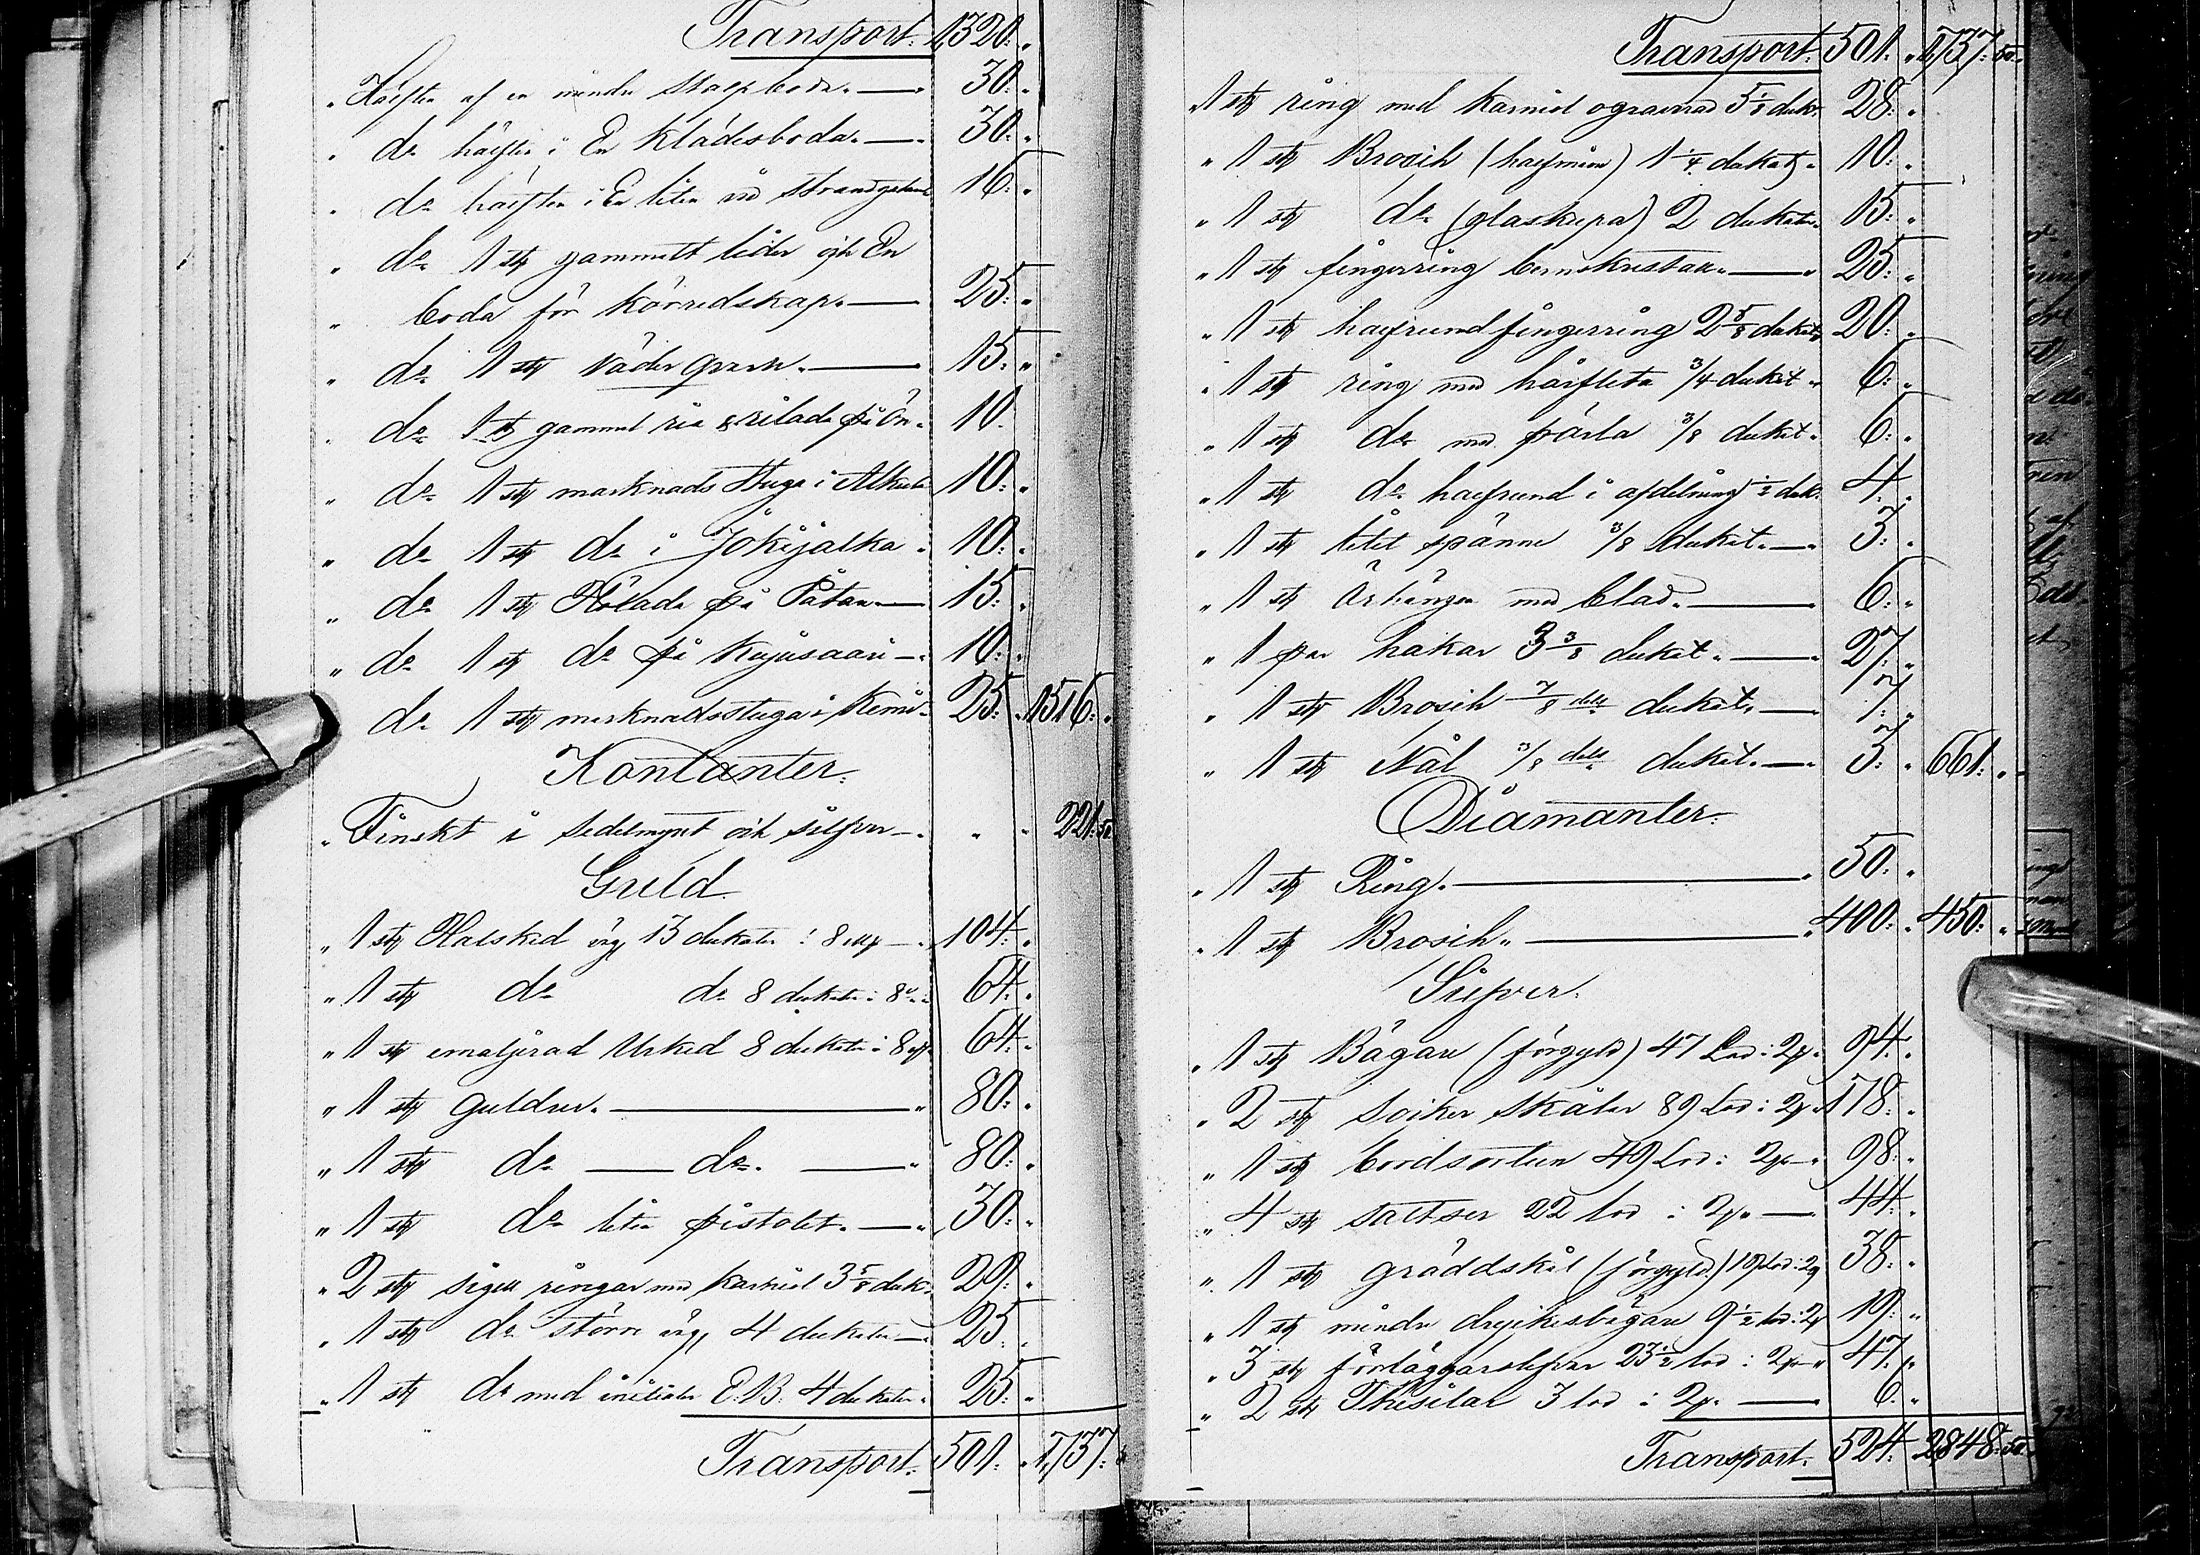 Transport. 1,320: "
" Hälften af en mindre Stolpboda. — 30: "
" do hälften i En Klädesboda. — 30: "
" do hälften i En liten vid Strandgatan 16: "
" do 1 st gammalt lider och En
" boda för körredskap. — 25: "
" do 1 st väderqvarn. — 15: "
" do 1 st gammal ria & rilada på Ön. 10.
" do 1 st marknads Stuga i Alkula 10: "
" do 1 st do i Jokijalka 10: "
" do 1 st Hölada på — 15: "
" do 1 st do på Kujusaari — 10: "
" do 1 st marknadsstuga i Kemi 25: " 1516: "
Kontanter.
" Finskt i sedelmynt och silfver — " " 221:50
Guld
" 1 st Halsked väg. 13 dukater i 8 — 104: "
" 1 st do do 8 dukater i 8 " 64: "
" 1 st emaljerad Urked 8 dukater i 8 64: "
" 1 st guldur. — 80: "
" 1 st do — do. — 80: "
" 1 st do liten pistolet. — 30: "
" 2 st sigill ringar med karniol 3 5/8 duk. 29: "
" 1 st do större väg. 4 dukater — 25 "
" 1 st do med initialer E.B. 4 dukater 25: "
Transport. 501: " 1,737:
Transport. 501: " 1,737:50
" 1 st ring med karniol ograverad 5 1/8 duk. 28: "
" 1 st Brosch (halfmåne) 1 1/4 dukat 10: "
" 1 st do (glaskupa) 2 dukater 15: "
" 1 st fingerring — 25: "
" 1 st halfrund fingerring 2 5/8 dukat 20: "
" 1 st ring med hårfläta 3/4 dukat " 6: "
" 1 st do med pärla 3/8 dukat " 6: "
" 1 st do halfrund i afdelning 1/2 duk. 4: "
" 1 st litet spänne 3/8 dukat. — 3: "
" 1 st Örhängen med blad. — 6: "
" 1 par hakar 3 3/8 dukat. — 27: "
" 1 st Brosch 7/8 dels dukat. — 7: "
" 1 st Nål 3/8 dels dukat. — 3: " 661: "
Diamanter.
" 1 st Ring. — 50: "
" 1 st Brosch. — 400: " 450: "
Silfver.
" 1 st Bägare (förgyld) 47 Lod i 2 94: "
" 2 st Socker skålar 89 Lod i 2 178: "
" 1 st bordsorteen 49 Lod i 2 98: "
" 4 st saltser 22 lod i 2 — 44: "
" 1 st gräddskål (förgyld) 19 Lod i 2 38: "
" 1 st mindre dryckesbägare 9 1/2 lod i 2 19: "
" 3 st förläggarslefvar 23 1/2 lod i 2 47: "
" 2 st Thésilar 3 lod i 2 — 6: "
Transport. 524: " 2848:50